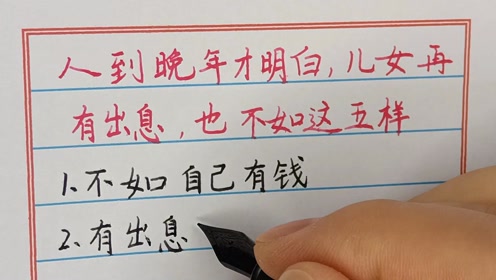 人到晚年才明白，儿女再
有出息，也不如这五样
1.不如自己有钱
2.有出息